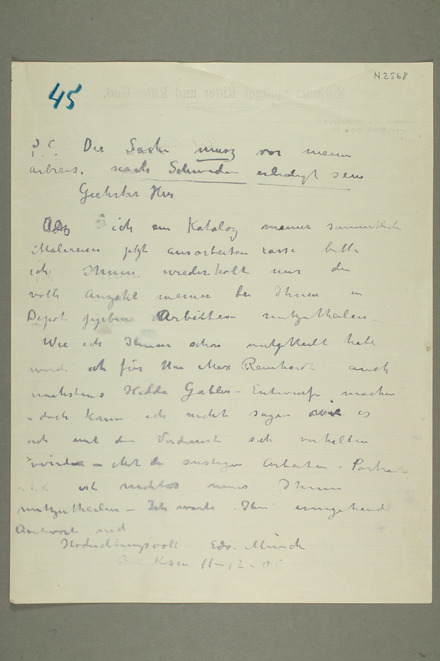 N 2568
45
P.S. Die Sache musz vor meine
abreis. nach Schweden erledigt sein
Geehrter Herr
Als ich ein Katalog meiner sammtlich
Malereien jetzt ausarbeiten lasse bitte
ich Ihnen wiederholt mir die
volle Anzahl meiner bei Ihnen in
Depot gegeben Arbeiten mitzutheilen
Wie ich Ihnen schon mitgetheilt habe
werde ich für Max Reinhardt auch
nächstens Hedda Gabler – Entwurfe machen
– doch kann ich nicht sagen wie es
sich mit der Verdienst sich verhalten
würde – der sonstigen Arbeiten – Portrait
ist nichts neues Ihnen
mitzutheilen – Ich warte Ihre umgehend
Antwort und
Hochachtungsvoll Edv. Munch
Kösen 11–12–05